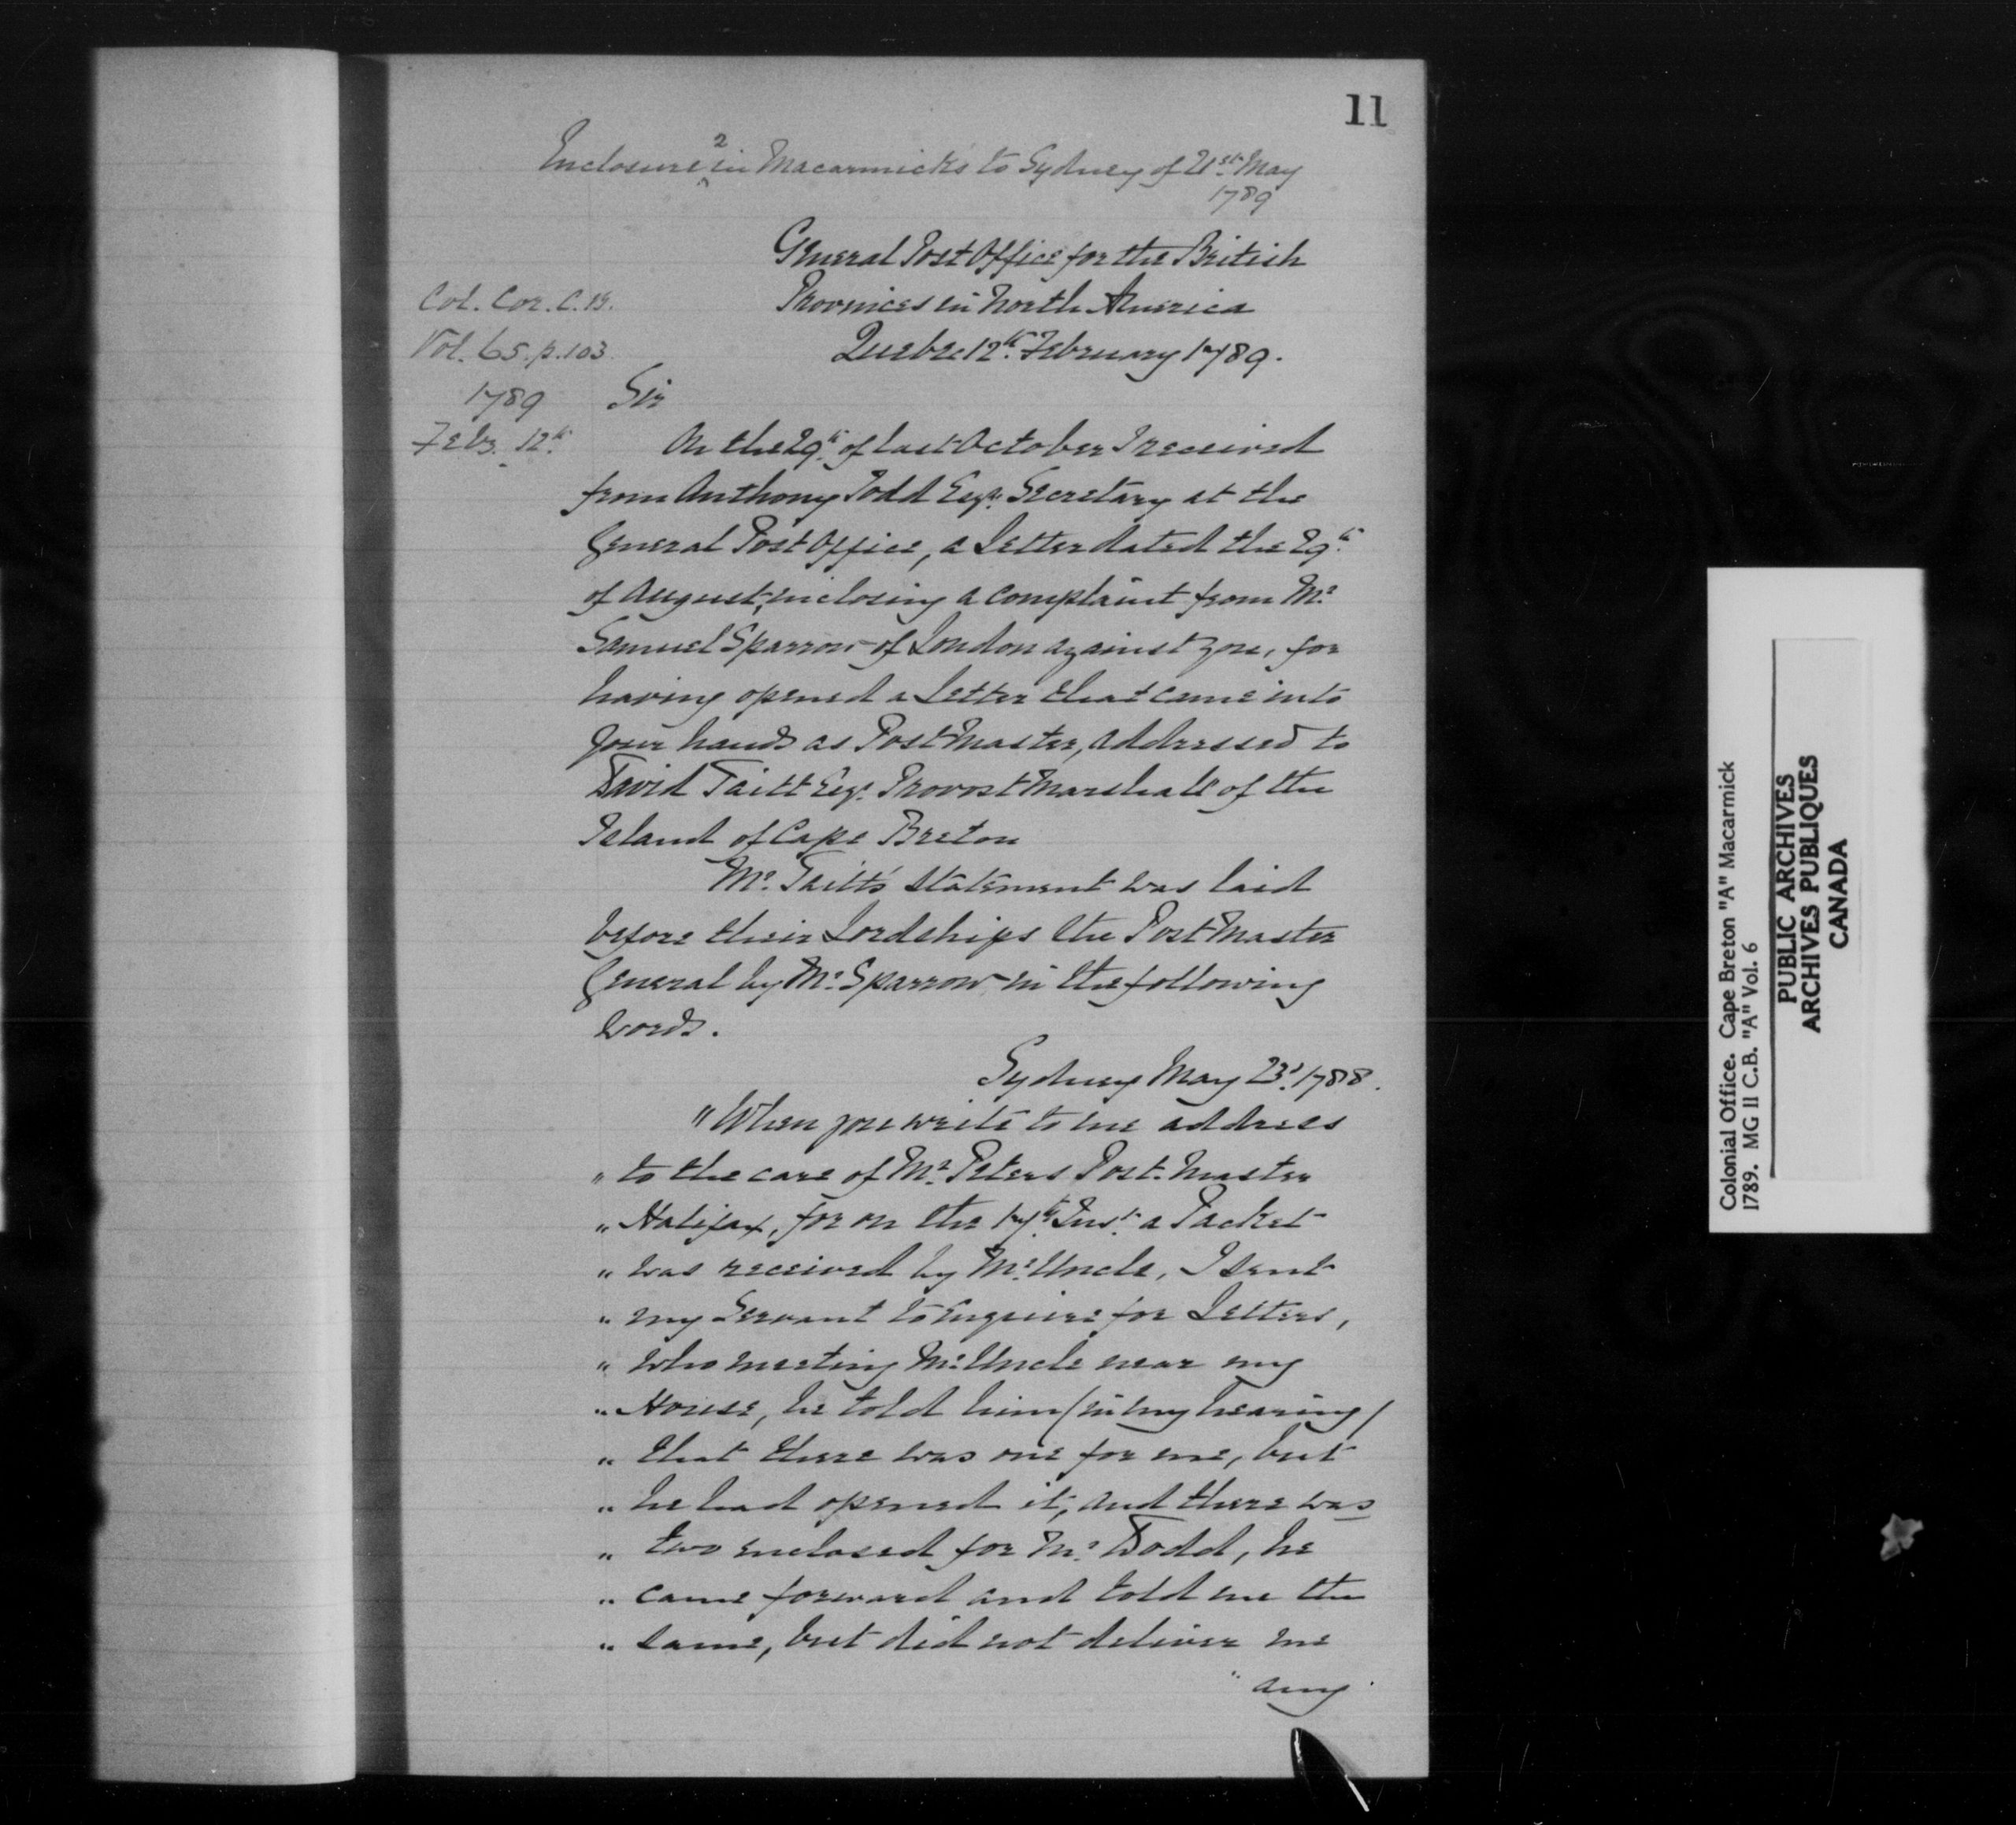 11
Enclosure 2 in Macarmick's to Sydney of 21st May
1789
General Post Office for the British
Provinces in North America
Quebec 12th February 1789.
Col. Cor. C.B.
Vol. 65. p. 103
1789
Feby. 12th
Sir
On the 29th of last October I received
from Anthony Todd Esqr. Secretary at the
General Post Office, a Letter dated the 29th
of August, inclosing a complaint from Mr.
Samuel Sparrow of London against you, for
having opened a Letter that came into
your hands as Post Master, addressed to
David Taitt Esqr. Provost Marshall of the
Island of Cape Breton
Mr. Taitt's statement was laid
before their Lordships the Post Master
General by Mr. Sparrow in the following
words.
Sydney May 23d. 1788.
"When you write to me address
" to the care of Mr. Peters Post. Master
" Halifax, for on the 17th Inst. a Packet
" was received by Mr. Uncle, I sent
" my Servant to enquire for Letters,
" who meeting Mr. Uncle near my
" House, he told him (in my hearing)
" that there was one for me, but
" he had opened it, and there was
" two enclosed for Mr. Dodd, he
" came forward and told me the
" same, but did not deliver me
" any
Colonial Office. Cape Breton "A" Macarmick
1789. MG II C.B. "A" Vol. 6
PUBLIC ARCHIVES
ARCHIVES PUBLIQUES
CANADA